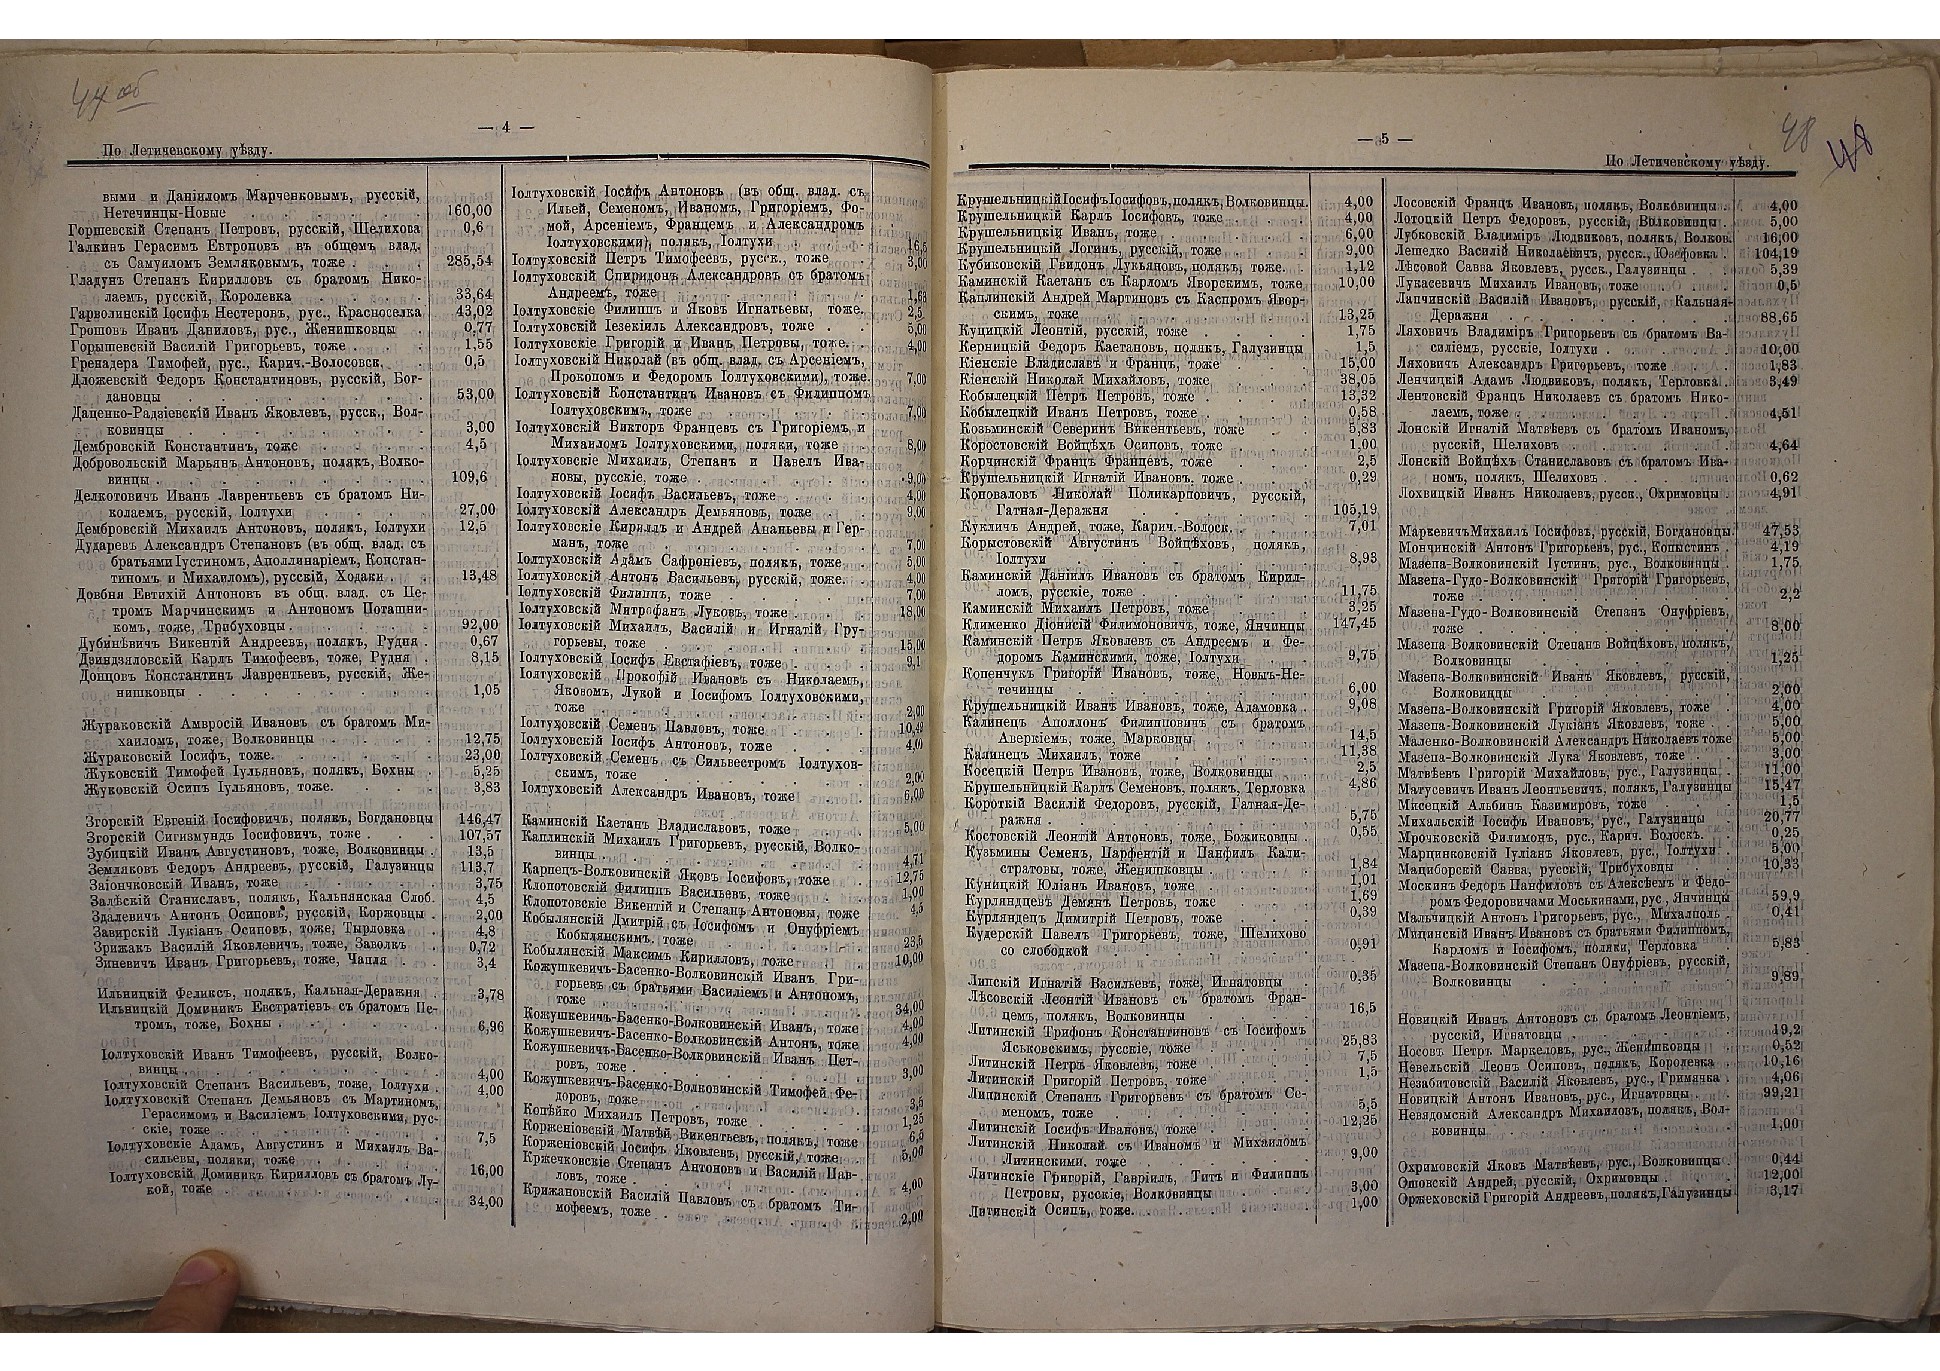 44 об
— 4 —
По Летичевскому уѣзду.
выми и Даніиломъ Марченковымъ, русскій,
Нетечинцы-Новые 160,00
Горшевскій Степанъ Петровъ, русскій, Шелихова 0,6
Галкинъ Герасимъ Евтроповъ въ общемъ влад.
съ Самуиломъ Земляковымъ, тоже 285,54
Гладунъ Степанъ Кирилловъ съ братомъ Нико-
лаемъ, русскій, Королевка 33,64
Гарволинскій Іосифъ Нестеровъ, рус., Красноселка 43,02
Грошовъ Иванъ Даниловъ, рус., Женишковцы 0,77
Горышевскій Василій Григорьевъ, тоже 1,55
Гренадера Тимофей, рус., Карич.-Волосовск. 0,5
Дложевскій Федоръ Константиновъ, русскій, Бог-
дановцы 53,00
Даценко-Радзіевскій Иванъ Яковлевъ, русск., Вол-
ковинцы 3,00
Дембровскій Константинъ, тоже 4,5
Добровольскій Марьянъ Антоновъ, полякъ, Волко-
винцы 109,6
Делкотовичъ Иванъ Лаврентьевъ съ братомъ Ни-
колаемъ, русскій, Іолтухи 27,00
Дембровскій Михаилъ Антоновъ, полякъ, Іолтухи 12,5
Дударевъ Александръ Степановъ (въ общ. влад. съ
братьями Іустиномъ, Аполлинаріемъ, Констан-
тиномъ и Михаиломъ), русскій, Ходаки 13,48
Довбня Евтихій Антоновъ въ общ. влад. съ Пе-
тромъ Марчинскимъ и Антономъ Поташни-
комъ, тоже, Трибуховцы 92,00
Дубинѣвичъ Викентій Андреевъ, полякъ, Рудня 0,67
Двиндзяловскій Карлъ Тимофеевъ, тоже, Рудня 8,15
Донцовъ Константинъ Лаврентьевъ, русскій, Же-
нишковцы 1,05
Жураковскій Амвросій Ивановъ съ братомъ Ми-
хаиломъ, тоже, Волковинцы 12,75
Жураковскій Іосифъ, тоже. 23,00
Жуковскій Тимофей Іульяновъ, полякъ, Бохны 5,25
Жуковскій Осипъ Іульяновъ, тоже. 3,83
Згорскій Евгеній Іосифовичъ, полякъ, Богдановцы 146,47
Згорскій Сигизмундъ Іосифовичъ, тоже 107,57
Зубицкій Иванъ Августиновъ, тоже, Волковинцы 13,5
Земляковъ Федоръ Андреевъ, русскій, Галузинцы 113,7
Заіончковскій Иванъ, тоже 3,75
Залѣскій Станиславъ, полякъ, Кальнянская Слоб. 4,5
Здалевичъ Антонъ Осиповъ, русскій, Коржовцы 2,00
Завирскій Лукіанъ Осиповъ, тоже, Тырловка 4,8
Зрижакъ Василій Яковлевичъ, тоже, Заволкъ 0,72
Зиневичъ Иванъ Григорьевъ, тоже, Чапля 3,4
Ильницкій Феликсъ, полякъ, Кальная-Деражня 3,78
Ильницкій Доминикъ Евстратіевъ съ братомъ Пе-
тромъ, тоже, Бохны 6,96
Іолтуховскій Иванъ Тимофеевъ, русскій, Волко-
винцы 4,00
Іолтуховскій Степанъ Васильевъ, тоже, Іолтухи 4,00
Іолтуховскій Степанъ Демьяновъ съ Мартиномъ,
Герасимомъ и Василіемъ Іолтуховскими, рус-
скіе, тоже 7,5
Іолтуховскіе Адамъ, Августинъ и Михаилъ Ва-
сильевы, поляки, тоже 16,00
Іолтуховскій Доминикъ Кирилловъ съ братомъ Лу-
кой, тоже 34,00
Іолтуховскій Іосифъ Антоновъ (въ общ. влад. съ
Ильей, Семеномъ, Иваномъ, Григоріемъ, Фо-
мой, Арсеніемъ, Францемъ и Александромъ
Іолтуховскими), полякъ, Іолтухи 16,5
Іолтуховскій Петръ Тимофеевъ, русск., тоже 3,00
Іолтуховскій Спиридонъ Александровъ съ братомъ
Андреемъ, тоже 1,68
Іолтуховскіе Филиппъ и Яковъ Игнатьевы, тоже. 2,5
Іолтуховскій Іезекіиль Александровъ, тоже 5,00
Іолтуховскіе Григорій и Иванъ Петровы, тоже. 4,00
Іолтуховскій Николай (въ общ. влад. съ Арсеніемъ,
Прокопомъ и Федоромъ Іолтуховскими), тоже 7,00
Іолтуховскій Константинъ Ивановъ съ Филиппомъ
Іолтуховскимъ, тоже 7,00
Іолтуховскій Викторъ Францевъ съ Григоріемъ и
Михаиломъ Іолтуховскими, поляки, тоже 8,00
Іолтуховскіе Михаилъ, Степанъ и Павелъ Ива-
новы, русскіе, тоже 9,00
Іолтуховскій Іосифъ Васильевъ, тоже 4,00
Іолтуховскій Александръ Демьяновъ, тоже 9,00
Іолтуховскіе Кириллъ и Андрей Ананьевы и Гер-
манъ, тоже 7,00
Іолтуховскій Адамъ Сафроніевъ, полякъ, тоже 5,00
Іолтуховскій Антонъ Васильевъ, русскій, тоже. 4,00
Іолтуховскій Филиппъ, тоже 7,00
Іолтуховскій Митрофанъ Луковъ, тоже 18,00
Іолтуховскій Михаилъ, Василій и Игнатій Гру-
горьевы, тоже 15,00
Іолтуховскій Іосифъ Евстафіевъ, тоже 9,1
Іолтуховскій Прокофій Ивановъ съ Николаемъ,
Яковомъ, Лукой и Іосифомъ Іолтуховскими,
тоже 2,00
Іолтуховскій Семенъ Павловъ, тоже 10,40
Іолтуховскій Іосифъ Антоновъ, тоже 4,00
Іолтуховскій Семенъ съ Сильвестромъ Іолтухов-
скимъ, тоже 2,00
Іолтуховскій Александръ Ивановъ, тоже 6,00
Каминскій Каетанъ Владиславовъ, тоже 5,00
Каплинскій Михаилъ Григорьевъ, русскій, Волко-
винцы 4,71
Карпецъ-Волковинскій Яковъ Іосифовъ, тоже 12,75
Клопотовскій Филиппъ Васильевъ, тоже 1,00
Клопотовскіе Викентій и Степанъ Антоновы, тоже 4,5
Кобылянскій Дмитрій съ Іосифомъ и Онуфріемъ
Кобылянскимъ, тоже 23,5
Кобылянскій Максимъ Кирилловъ, тоже 10,00
Кожушкевичъ-Басенко-Волковинскій Иванъ Гри-
горьевъ съ братьями Василіемъ и Антономъ,
тоже 34,00
Кожушкевичъ-Басенко-Волковинскій Иванъ, тоже 4,00
Кожушкевичъ-Басенко-Волковинскій Антонъ, тоже 4,00
Кожушкевичъ-Басенко-Волковинскій Иванъ Пет-
ровъ, тоже 3,00
Кожушкевичъ-Басенко-Волковинскій Тимофей Фе-
доровъ, тоже 3,5
Копѣйко Михаилъ Петровъ, тоже 1,25
Корженіовскій Матвѣй Викентьевъ, полякъ, тоже 6,5
Корженіовскій Іосифъ Яковлевъ, русскій, тоже 5,00
Кржечковскіе Степанъ Антоновъ и Василій Пав-
ловъ, тоже 4,00
Крижановскій Василій Павловъ съ братомъ Ти-
мофеемъ, тоже 2,00
48 48
— 5 —
По Летичевскому уѣзду.
Крушельницкій Іосифъ Іосифовъ, полякъ, Волковинцы. 4,00
Крушельницкій Карлъ Іосифовъ, тоже 4,00
Крушельницкій Иванъ, тоже 6,00
Крушельницкій Логинъ, русскій, тоже 9,00
Кубиковскій Гвидонъ Лукьяновъ, полякъ, тоже. 1,12
Каминскій Каетанъ съ Карломъ Яворскимъ, тоже 10,00
Каплинскій Андрей Мартиновъ съ Каспромъ Явор-
скимъ, тоже 13,25
Куцицкій Леонтій, русскій, тоже 1,75
Керницкій Федоръ Каетановъ, полякъ, Галузинцы 1,5
Кіенскіе Владиславъ и Францъ, тоже 15,00
Кіенскій Николай Михайловъ, тоже 38,05
Кобылецкій Петръ Петровъ, тоже 13,32
Кобылецкій Иванъ Петровъ, тоже 0,58
Козьминскій Северинъ Викентьевъ, тоже 5,83
Коростовскій Войцѣхъ Осиповъ, тоже 1,00
Корчинскій Францъ Францевъ, тоже 2,5
Крушельницкій Игнатій Ивановъ, тоже 0,29
Коноваловъ Николай Поликарповичъ, русскій,
Гатная-Деражня 105,19
Кукличъ Андрей, тоже, Карич.-Волоск. 7,01
Корыстовскій Августинъ Войцѣховъ, полякъ,
Іолтухи 8,93
Каминскій Даніилъ Ивановъ съ братомъ Кирил-
ломъ, русскіе, тоже 11,75
Каминскій Михаилъ Петровъ, тоже 3,25
Клименко Діонисій Филимоновичъ, тоже, Янчинцы 147,45
Каминскій Петръ Яковлевъ съ Андреемъ и Фе-
доромъ Каминскими, тоже, Іолтухи 9,75
Копенчукъ Григорій Ивановъ, тоже, Новы-Не-
течинцы 6,00
Крушельницкій Иванъ Ивановъ, тоже, Адамовка 9,08
Калинецъ Аполлонъ Филипповичъ съ братомъ
Аверкіемъ, тоже, Марковцы 14,5
Калинецъ Михаилъ, тоже 11,38
Косецкій Петръ Ивановъ, тоже, Волковинцы 2,5
Крушельницкій Карлъ Семеновъ, полякъ, Терловка 4,86
Короткій Василій Федоровъ, русскій, Гатная-Де-
ражня 5,75
Костовскій Леонтій Антоновъ, тоже, Божиковцы 0,55
Кузьмины Семенъ, Парфентій и Панфилъ Кали-
стратовы, тоже, Женишковцы 1,84
Куницкій Юліанъ Ивановъ, тоже 1,01
Курляндцевъ Демянъ Петровъ, тоже 1,69
Курляндецъ Димитрій Петровъ, тоже 0,39
Кудерскій Павелъ Григорьевъ, тоже, Шелихово
со слободкой 0,91
Липскій Игнатій Васильевъ, тоже, Игнатовцы 0,35
Лѣсовскій Леонтій Ивановъ съ братомъ Фран-
цемъ, полякъ, Волковинцы 16,5
Литинскій Трифонъ Константиновъ съ Іосифомъ
Яськовскимъ, русскіе, тоже 25,83
Литинскій Петръ Яковлевъ, тоже 7,5
Литинскій Григорій Петровъ, тоже 1,5
Липинскій Степанъ Григорьевъ съ братомъ Се-
меномъ, тоже 5,5
Литинскій Іосифъ Ивановъ, тоже 12,25
Литинскій Николай съ Иваномъ и Михаиломъ
Литинскими, тоже 9,00
Литинскіе Григорій, Гавріилъ, Титъ и Филиппъ
Петровы, русскіе, Волковинцы 3,00
Литинскій Осипъ, тоже. 1,00
Лосовскій Францъ Ивановъ, полякъ, Волковинцы 4,00
Лотоцкій Петръ Федоровъ, русскій, Волковинцы 5,00
Лубковскій Владиміръ Людвиковъ, полякъ, Волков. 16,00
Лепедко Василій Николаевичъ, русск., Юзефовка 104,19
Лѣсовой Савва Яковлевъ, русск., Галузинцы 5,39
Лукасевичъ Михаилъ Ивановъ, тоже 0,5
Лапчинскій Василій Ивановъ, русскій, Кальная-
Деражня 88,65
Ляховичъ Владиміръ Григорьевъ съ братомъ Ва-
силіемъ, русскіе, Іолтухи 10,00
Ляховичъ Александръ Григорьевъ, тоже 1,83
Ленчицкій Адамъ Людвиковъ, полякъ, Терловка 3,49
Лентовскій Францъ Николаевъ съ братомъ Нико-
лаемъ, тоже 4,51
Лонскій Игнатій Матвѣевъ съ братомъ Иваномъ,
русскій, Шелиховъ 4,64
Лонскій Войцѣхъ Станиславовъ съ братомъ Ива-
номъ, полякъ, Шелиховъ 0,62
Лохвицкій Иванъ Николаевъ, русск., Охримовцы 4,91
Маркевичъ Михаилъ Іосифовъ, русскій, Богдановцы 47,53
Мончинскій Антонъ Григорьевъ, рус., Копыстинъ 4,19
Мазепа-Волковинскій Іустинъ, рус., Волковинцы 1,75
Мазепа-Гудо-Волковинскій Григорій Григорьевъ,
тоже 2,2
Мазепа-Гудо-Волковинскій Степанъ Онуфріевъ,
тоже 8,00
Мазепа Волковинскій Степанъ Войцѣховъ, полякъ,
Волковинцы 1,25
Мазепа-Волковинскій Иванъ Яковлевъ, русскій,
Волковинцы 2,00
Мазепа-Волковинскій Григорій Яковлевъ, тоже 4,00
Мазепа-Волковинскій Лукіанъ Яковлевъ, тоже 5,00
Маленко-Волковинскій Александръ Николаевъ тоже 5,00
Мазепа-Волковинскій Лука Яковлевъ, тоже 3,00
Матвѣевъ Григорій Михайловъ, рус., Галузинцы 11,00
Матусевичъ Иванъ Леонтьевичъ, полякъ, Галузинцы 15,47
Мисецкій Альбинъ Казимировъ, тоже 1,5
Михальскій Іосифъ Ивановъ, рус., Галузинцы 20,77
Мрочковскій Филимонъ, рус., Карич. Волоск. 0,25
Марцинковскій Іуліанъ Яковлевъ, рус., Іолтухи 5,00
Мациборскій Савва, русскій, Трибуховцы 10,33
Москинъ Федоръ Панфиловъ съ Алексѣемъ и Федо-
ромъ Федоровичами Моськинами, рус., Янчинцы 59,9
Мальчицкій Антонъ Григорьевъ, рус., Михалполь 0,41
Мицинскій Иванъ Ивановъ съ братьями Филиппомъ,
Карломъ и Іосифомъ, поляки, Терловка 5,83
Мазепа-Волковинскій Степанъ Онуфріевъ, русскій,
Волковинцы 9,89
Новицкій Иванъ Антоновъ съ братомъ Леонтіемъ,
русскій, Игнатовцы 19,2
Носовъ Петръ Маркеловъ, рус., Женишковцы 0,52
Невельскій Леонъ Осиповъ, полякъ, Королевка 10,16
Незабитовскій Василій Яковлевъ, рус., Гримячка 4,06
Новицкій Антонъ Ивановъ, рус., Игнатовцы 99,21
Невядомскій Александръ Михаиловъ, полякъ, Вол-
ковинцы 1,00
Охримовскій Яковъ Матвѣевъ, рус., Волковинцы 0,44
Оповскій Андрей, русскій, Охримовцы 12,00
Оржеховскій Григорій Андреевъ, полякъ, Галузинцы 3,17